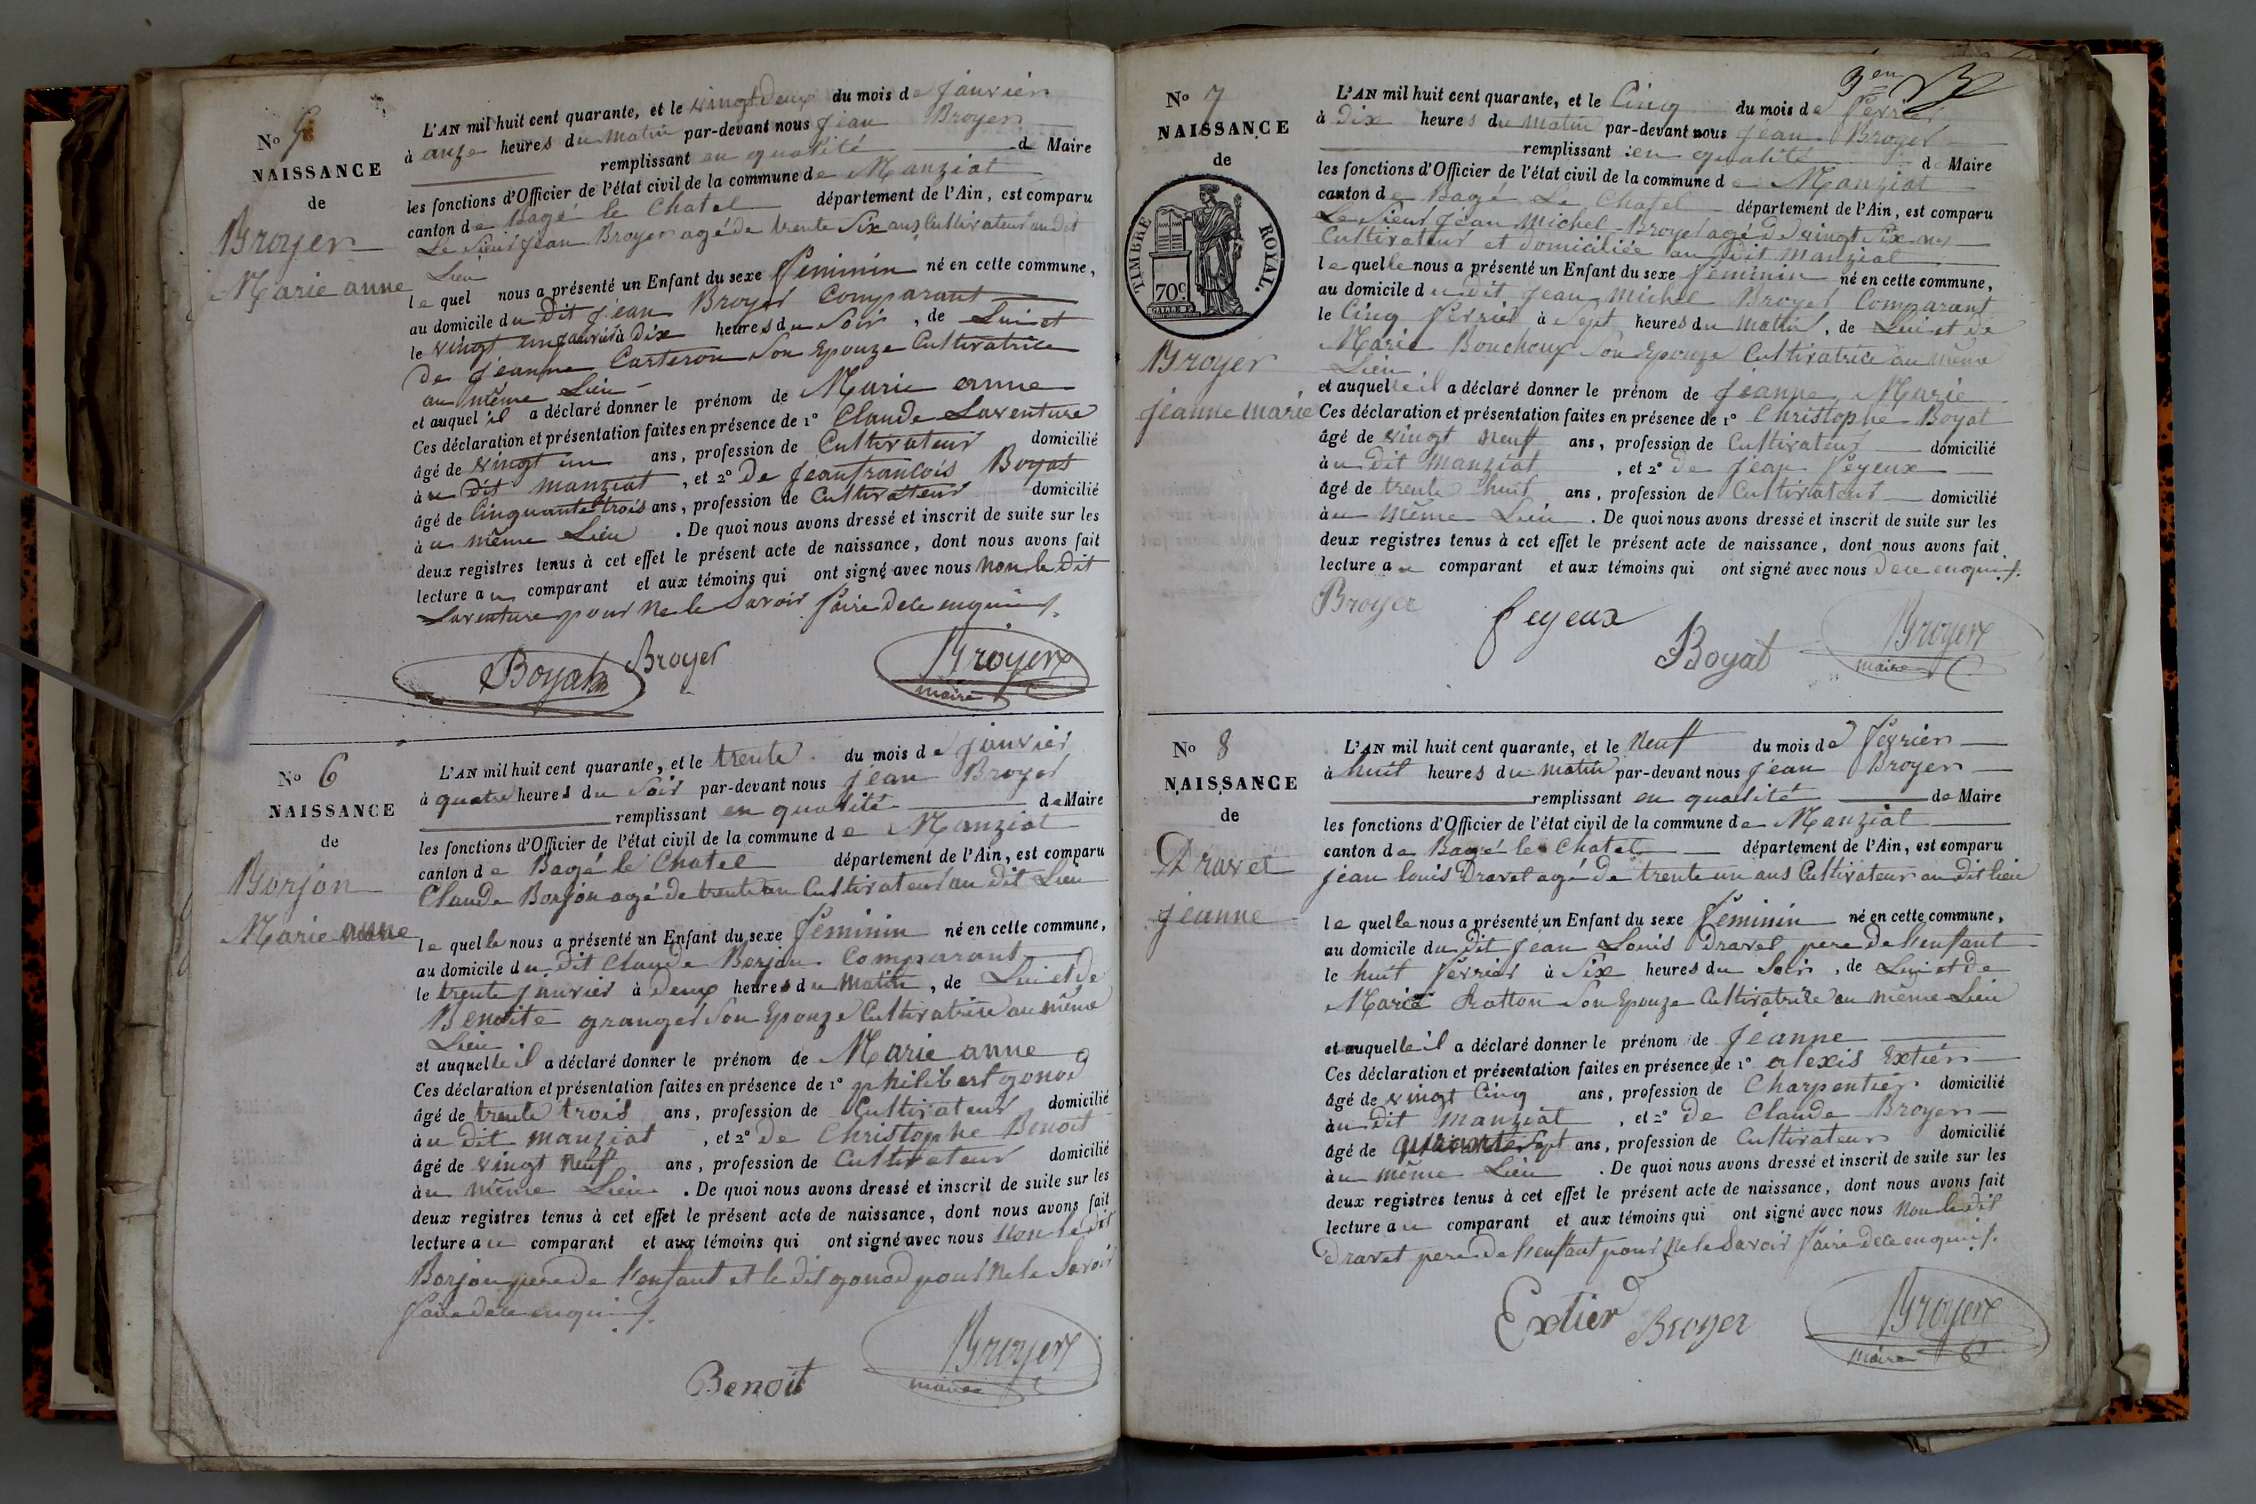 No 5
NAISSANCE
de
Broyer
Marie anne
L'AN mil huit cent quarante, et le vingt deux du mois de janvier
à onze heures du matin par-devant nous jean Broyer
remplissant en qualité de Maire
les fonctions d'Officier de l'état civil de la commune de Manziat
canton de Bagé le Chatel département de l'Ain, est comparu
Le Sieur jean Broyer agé de trente Six ans Cultivateur au dit
Lieu
le quel nous a présenté un Enfant du sexe féminin né en cette commune,
au domicile du dit jean Broyer Comparant
le vingt un janvier à Dix heures du Soir, de Lui et
de jeanne Carteron Son Epouze Cultivatrice
au même Lieu
et auquel il a déclaré donner le prénom de Marie anne
Ces déclaration et présentation faites en présence de 1° Claude Laventure
âgé de vingt un ans, profession de Cultivateur domicilié
à u dit manziat, et 2° De jean francois Boyat
âgé de Cinquante trois ans, profession de Cultivateur domicilié
à u même Lieu. De quoi nous avons dressé et inscrit de suite sur les
deux registres tenus à cet effet le présent acte de naissance, dont nous avons fait
lecture a u comparant et aux témoins qui ont signé avec nous non le dit
Laventure pour ne le Savoir faire de ce enquis.
Boyat Broyer Broyer
maire
No 6
NAISSANCE
de
Borjon
Marie anne
L'AN mil huit cent quarante, et le trente du mois de janvier
à quatre heures du Soir par-devant nous jean Broyer
remplissant en qualité de Maire
les fonctions d'Officier de l'état civil de la commune de Manziat
canton de Bagé le Chatel département de l'Ain, est comparu
Claude Borjon agé de trente un Cultivateur au dit Lieu
le quelle nous a présenté un Enfant du sexe féminin né en cette commune,
au domicile du dit Claude Borjon Comparant
le trente janvier à deux heures du Matin, de Lui et de
Benoite granger Son Epouze Cultivatrice au même
Lieu
et auquelle il a déclaré donner le prénom de Marie anne
Ces déclaration et présentation faites en présence de 1° philibert gonod
âgé de trente trois ans, profession de Cultivateur domicilié
à u dit manziat, et 2° de Christophe Benoit
âgé de vingt neuf ans, profession de Cultivateur domicilié
à u même Lieu. De quoi nous avons dressé et inscrit de suite sur les
deux registres tenus à cet effet le présent acte de naissance, dont nous avons fait
lecture a u comparant et aux témoins qui ont signé avec nous Non le dit
Borjon pere de l'enfant et le dit gonod pour ne le Savoir
faire de ce enquis.
Benoit Broyer
maire
3en
No 7
NAISSANCE
de
TIMBRE ROYAL.
70c
Broyer
jeanne marie
L'AN mil huit cent quarante, et le Cinq du mois de février
à Dix heures du matin par-devant nous jean Broyer
remplissant en qualité de Maire
les fonctions d'Officier de l'état civil de la commune de Manziat
canton de Bagé Le Chatel département de l'Ain, est comparu
Le Sieur jean Michel Broyer agé de vingt Six ans
Cultivateur et domiciliée au dit Manziat
le quelle nous a présenté un Enfant du sexe féminin né en cette commune,
au domicile du dit jean michel Broyer Comparant
le Cinq février à Sept heures du matin, de Lui et de
Marie Bouchoux Son Epouze Cultivatrice au même
Lieu
et auquelle il a déclaré donner le prénom de jeanne Marie
Ces déclaration et présentation faites en présence de 1° Christophe Boyat
âgé de vingt neuf ans, profession de Cultivateur domicilié
à u dit Manziat, et 2° de jean feyeux
âgé de trente huit ans, profession de Cultivateur domicilié
à u même Lieu. De quoi nous avons dressé et inscrit de suite sur les
deux registres tenus à cet effet le présent acte de naissance, dont nous avons fait
lecture a u comparant et aux témoins qui ont signé avec nous de ce enquis.
Broyer feyeux Boyat Broyer
maire
No 8
NAISSANCE
de
Dravet
jeanne
L'AN mil huit cent quarante, et le Neuf du mois de février
à huit heures du matin par-devant nous jean Broyer
remplissant en qualité de Maire
les fonctions d'Officier de l'état civil de la commune de Manziat
canton de Bagé le Chatel département de l'Ain, est comparu
jean louis Dravet agé de trente un ans Cultivateur au dit lieu
le quelle nous a présenté un Enfant du sexe féminin né en cette commune,
au domicile du dit jean Louis Dravet pere de l'enfant
le huit février à Six heures du Soir, de Lui et de
Marie Son Epouze Cultivatrice au même Lieu
et auquelle il a déclaré donner le prénom de jeanne
Ces déclaration et présentation faites en présence de 1° alexis Extier
âgé de vingt Cinq ans, profession de Charpentier domicilié
à u dit manziat, et 2° de Claude Broyer
âgé de quarante Sept ans, profession de Cultivateur domicilié
à u même Lieu. De quoi nous avons dressé et inscrit de suite sur les
deux registres tenus à cet effet le présent acte de naissance, dont nous avons fait
lecture a u comparant et aux témoins qui ont signé avec nous Non le dit
Dravet pere de l'enfant pour ne le Savoir faire de ce enquis.
Extier Broyer Broyer
maire